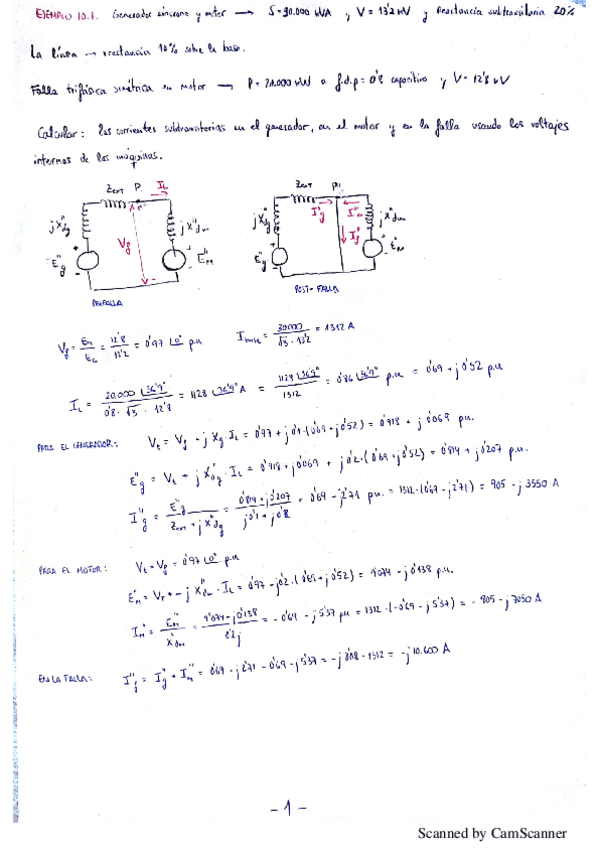 EJEMPLO 10.1. Generador síncrono y motor → S=30.000 kVA , V = 13'2 kV y Reactancia subtransitoria 20%
La línea → reactancia 10% sobre la base.
Falla trifásica simétrica en motor → P = 20.000 kW a f.d.p = 0'8 capacitivo y V = 12'8 kV
Calcular: las corrientes subtransitorias en el generador, en el motor y en la falla usando los voltajes
internos de las máquinas.
Zext P. IL
Zext P. I''g I''m
jX''dg Vf jX''dm
jX''dg I''f jX''dm
E''g E''M
E''g E''M
PREFALLA
POST-FALLA
Vf = = 12'8 / 13'2 = 0'97 ∠0° p.u. Ibase = 30.000 / √3 · 13'2 = 1312 A
IL = 20.000 ∠36'9° / 0'8 · √3 · 12'8 = 1128 ∠36'9° A = 1128 ∠36'9° / 1312 = 0'86 ∠36'9° p.u. = 0'69 + j0'52 p.u
PARA EL GENERADOR: Vt = Vf + j Xg · IL = 0'97 + j0'1·(0'69 + j0'52) = 0'918 + j0'069 p.u.
E''g = Vt + j X''dg · IL = 0'918 + j0'069 + j0'2·(0'69 + j0'52) = 0'814 + j0'207 p.u.
I''g = E''g / Zext + jX''dg = 0'814 + j0'207 / = 0'69 - j2'71 p.u. = 1312·(0'69 - j2'71) = 905 - j 3550 A
PARA EL MOTOR: Vt = Vf = 0'97 ∠0° p.u
E''m = - j X''dm · IL = 0'97 - j0'2·(0'69 + j0'52) = 1'074 - j0'138 p.u.
I''m = E''m / X''dm = 1'074 - j0'138 / 0'2j = -0'69 - j 5'37 pu = 1312·(-0'69 - j 5'37) = - 905 - j7050 A
EN LA FALLA: I''f = I''g + I''m = 0'69 - j2'71 - 0'69 - j5'37 = -j 8'08 · 1312 = -j 10.600 A
- 1 -
Scanned by CamScanner